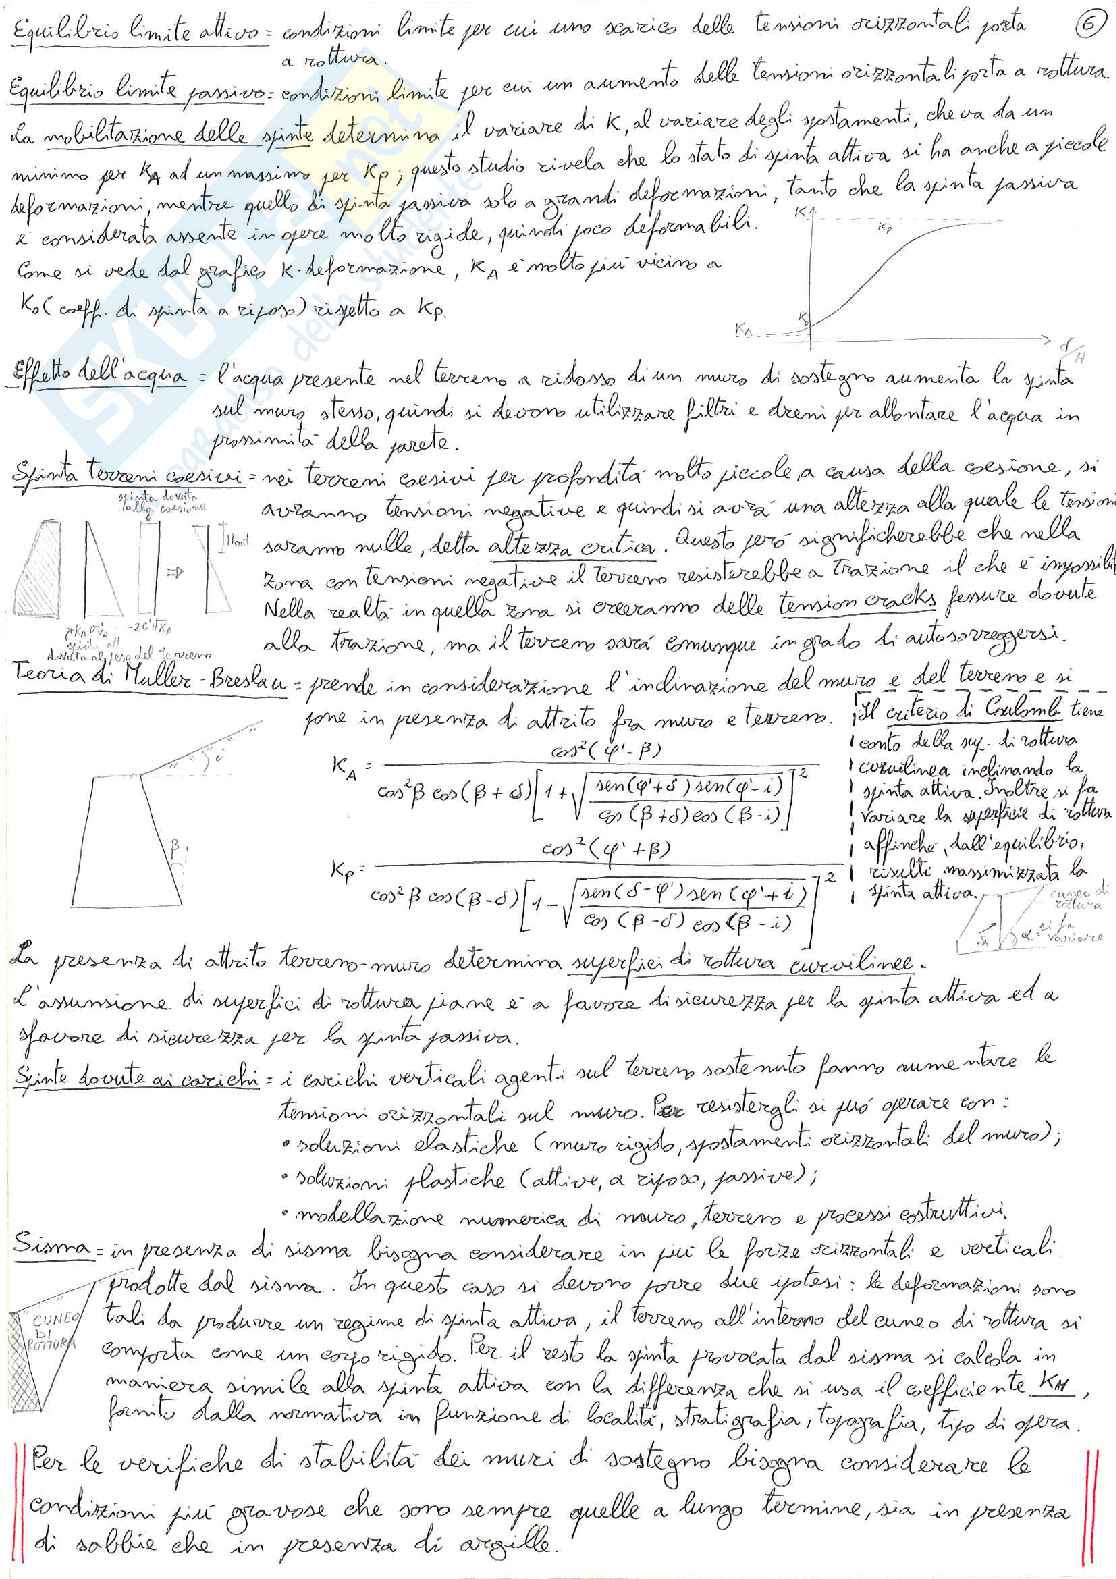 Equilibrio limite attivo = condizioni limite per cui uno scarico delle tensioni orizzontali porta
6
a rottura.
Equilibrio limite passivo = condizioni limite per cui un aumento delle tensioni orizzontali porta a rottura
La mobilitazione delle spinte determina il variare di K, al variare degli spostamenti, che va da un
minimo per KA ad un massimo per Kp; questo studio rivela che lo stato di spinta attiva si ha anche a piccole
deformazioni, mentre quello di spinta passiva solo a grandi deformazioni, tanto che la spinta passiva
è considerata assente in opere molto rigide, quindi poco deformabili.
Come si vede dal grafico K-deformazione, KA è molto più vicino a
K0 (coeff. di spinta a riposo) rispetto a Kp.
K
Kp
K0
KA
δ/H
Effetto dell'acqua = l'acqua presente nel terreno a ridosso di un muro di sostegno aumenta la spinta
sul muro stesso, quindi si devono utilizzare filtri e dreni per allontare l'acqua in
prossimità della parete.
Spinta terreni coesivi = nei terreni coesivi per profondità molto piccole, a causa della coesione, si
avranno tensioni negative e quindi si avrà una altezza alla quale le tensioni
saranno nulle, detta altezza critica. Questo però significherebbe che nella
zona con tensioni negative il terreno resisterebbe a trazione il che è impossibile
Nella realtà in quella zona si creeranno delle tension cracks fessure dovute
alla trazione, ma il terreno sarà comunque in grado di autosorreggersi.
spinta dovuta
alla coesione
⇒
-2c'√KA
dovuta al peso del terreno
Teoria di Muller-Breslau = prende in considerazione l'inclinazione del muro e del terreno e si
pone in presenza di attrito fra muro e terreno.
i
β
KA = cos²(φ'-β) / cos²β cos(β+δ) [1+√(sen(φ'+δ) sen(φ'-i) / cos(β+δ) cos(β-i))]²
Kp = cos²(φ'+β) / cos²β cos(β-δ) [1-√(sen(δ-φ') sen(φ'+i) / cos(β-δ) cos(β-i))]²
Il criterio di Coulomb tiene
conto della sup. di rottura
curvilinea inclinando la
spinta attiva. Inoltre si fa
variare la superficie di rottura
affinché, dall'equilibrio,
risulti massimizzata la
spinta attiva.
cuneo di
rottura
α si fa
variare
La presenza di attrito terreno-muro determina superfici di rottura curvilinee.
L'assunsione di superfici di rottura piane è a favore di sicurezza per la spinta attiva ed a
sfavore di sicurezza per la spinta passiva.
Spinte dovute ai carichi = i carichi verticali agenti sul terreno sostenuto fanno aumentare le
tensioni orizzontali sul muro. Per resistergli si può operare con:
• soluzioni elastiche (muro rigido, spostamenti orizzontali del muro);
• soluzioni plastiche (attive, a riposo, passive);
• modellazione numerica di muro, terreno e processi costruttivi.
Sisma = in presenza di sisma bisogna considerare in più le forze orizzontali e verticali
prodotte dal sisma. In questo caso si devono porre due ipotesi: le deformazioni sono
tali da produrre un regime di spinta attiva, il terreno all'interno del cuneo di rottura si
comporta come un corpo rigido. Per il resto la spinta provocata dal sisma si calcola in
maniera simile alla spinta attiva con la differenza che si usa il coefficiente KH,
fornito dalla normativa in funzione di località, stratigrafia, topografia, tipo di opera.
CUNEO
DI
ROTTURA
Per le verifiche di stabilità dei muri di sostegno bisogna considerare le
condizioni più gravose che sono sempre quelle a lungo termine, sia in presenza
di sabbie che in presenza di argille.